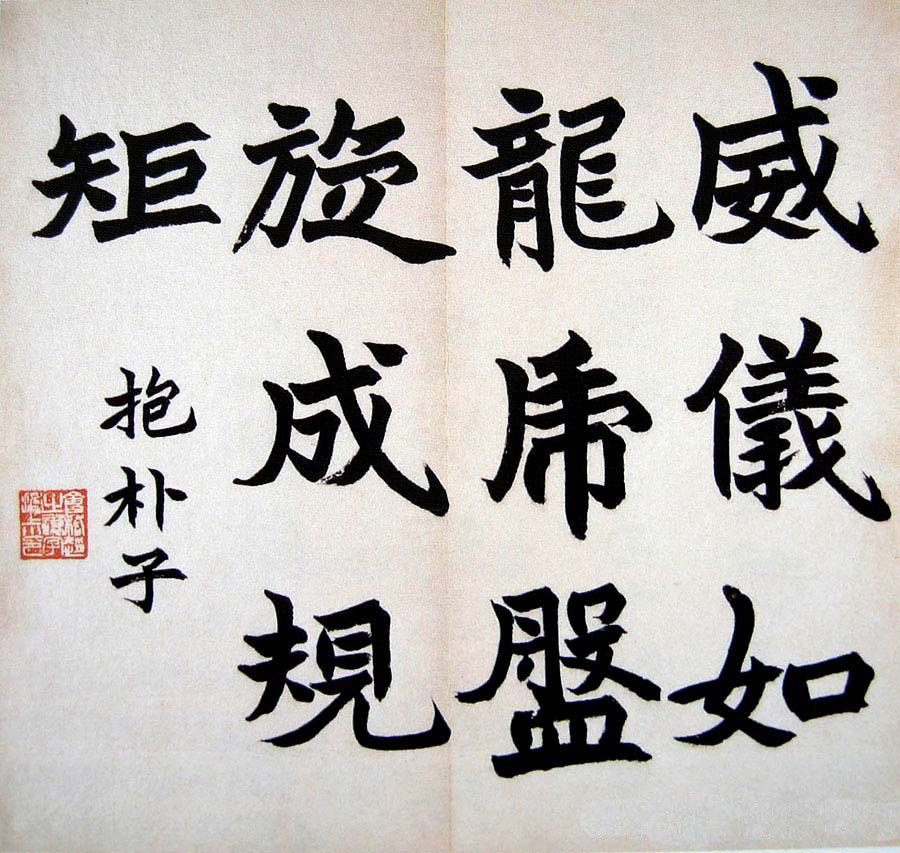 威儀如
龍虎盤
旋成規
矩
抱朴子